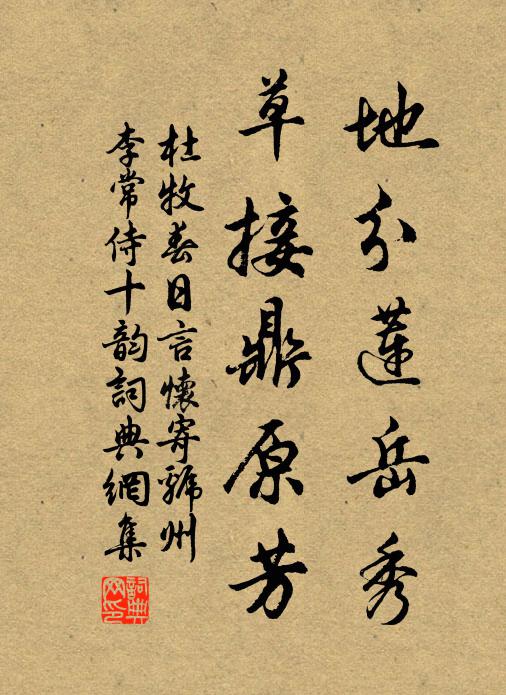 地分莲岳秀
草接鼎原芳
杜牧春日言懷寄虢州
李常侍十韵詞典網集
詞典网印